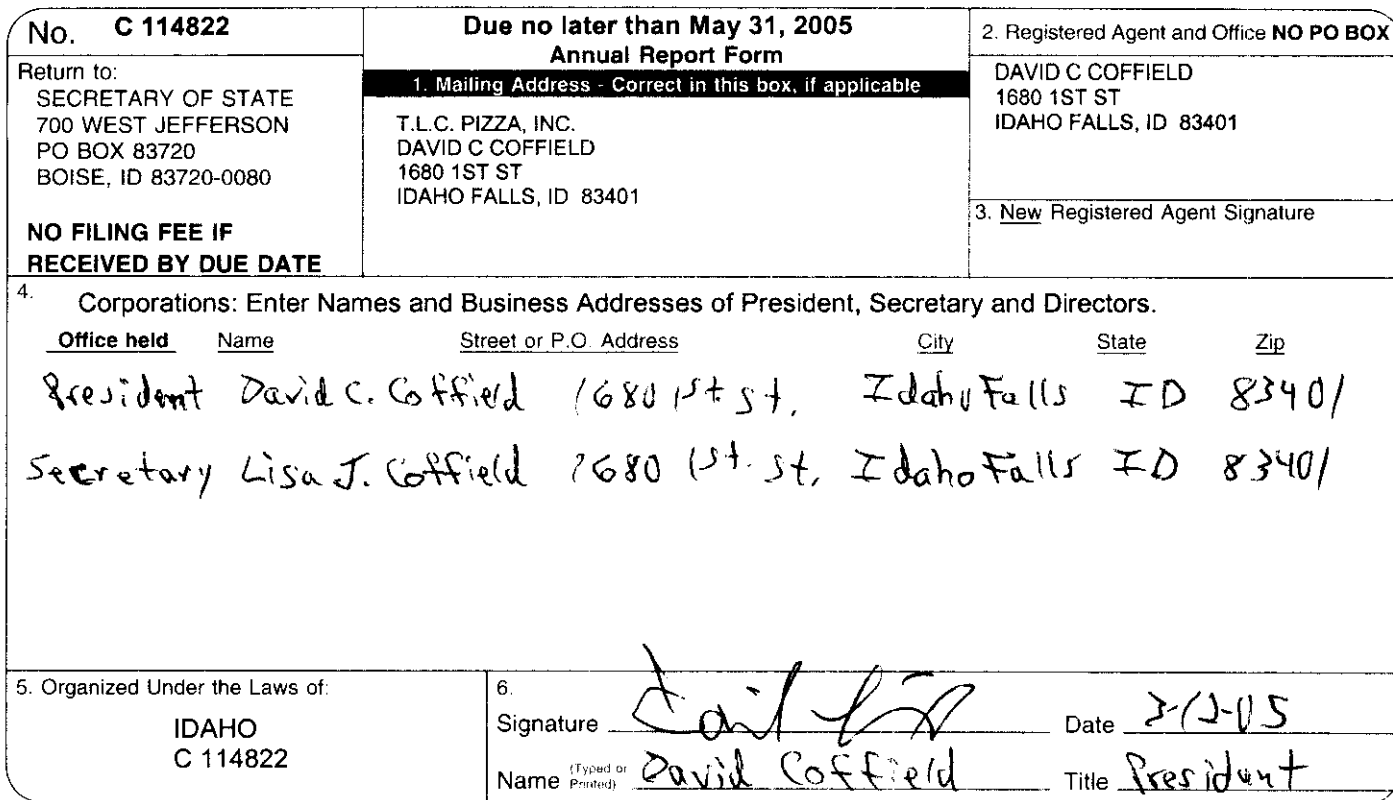 No. C 114822
Return to:
SECRETARY OF STATE
700 WEST JEFFERSON
PO BOX 83720
BOISE, ID 83720-0080
NO FILING FEE IF
RECEIVED BY DUE DATE
Due no later than May 31, 2005
Annual Report Form
1. Mailing Address - Correct in this box, if applicable
T.L.C. PIZZA, INC.
DAVID C COFFIELD
1680 1ST ST
IDAHO FALLS, ID 83401
2. Registered Agent and Office NO PO BOX
DAVID C COFFIELD
1680 1ST ST
IDAHO FALLS, ID 83401
3. New Registered Agent Signature
4. Corporations: Enter Names and Business Addresses of President, Secretary and Directors.
Office held Name Street or P.O. Address City State Zip
President David C. Coffield 1680 1st st. Idaho Falls ID 83401
Secretary Lisa J. Coffield 1680 1st. st. Idaho Falls ID 83401
5. Organized Under the Laws of:
IDAHO
C 114822
6.
Signature Date
Name (Typed or Printed) David Coffield Title President